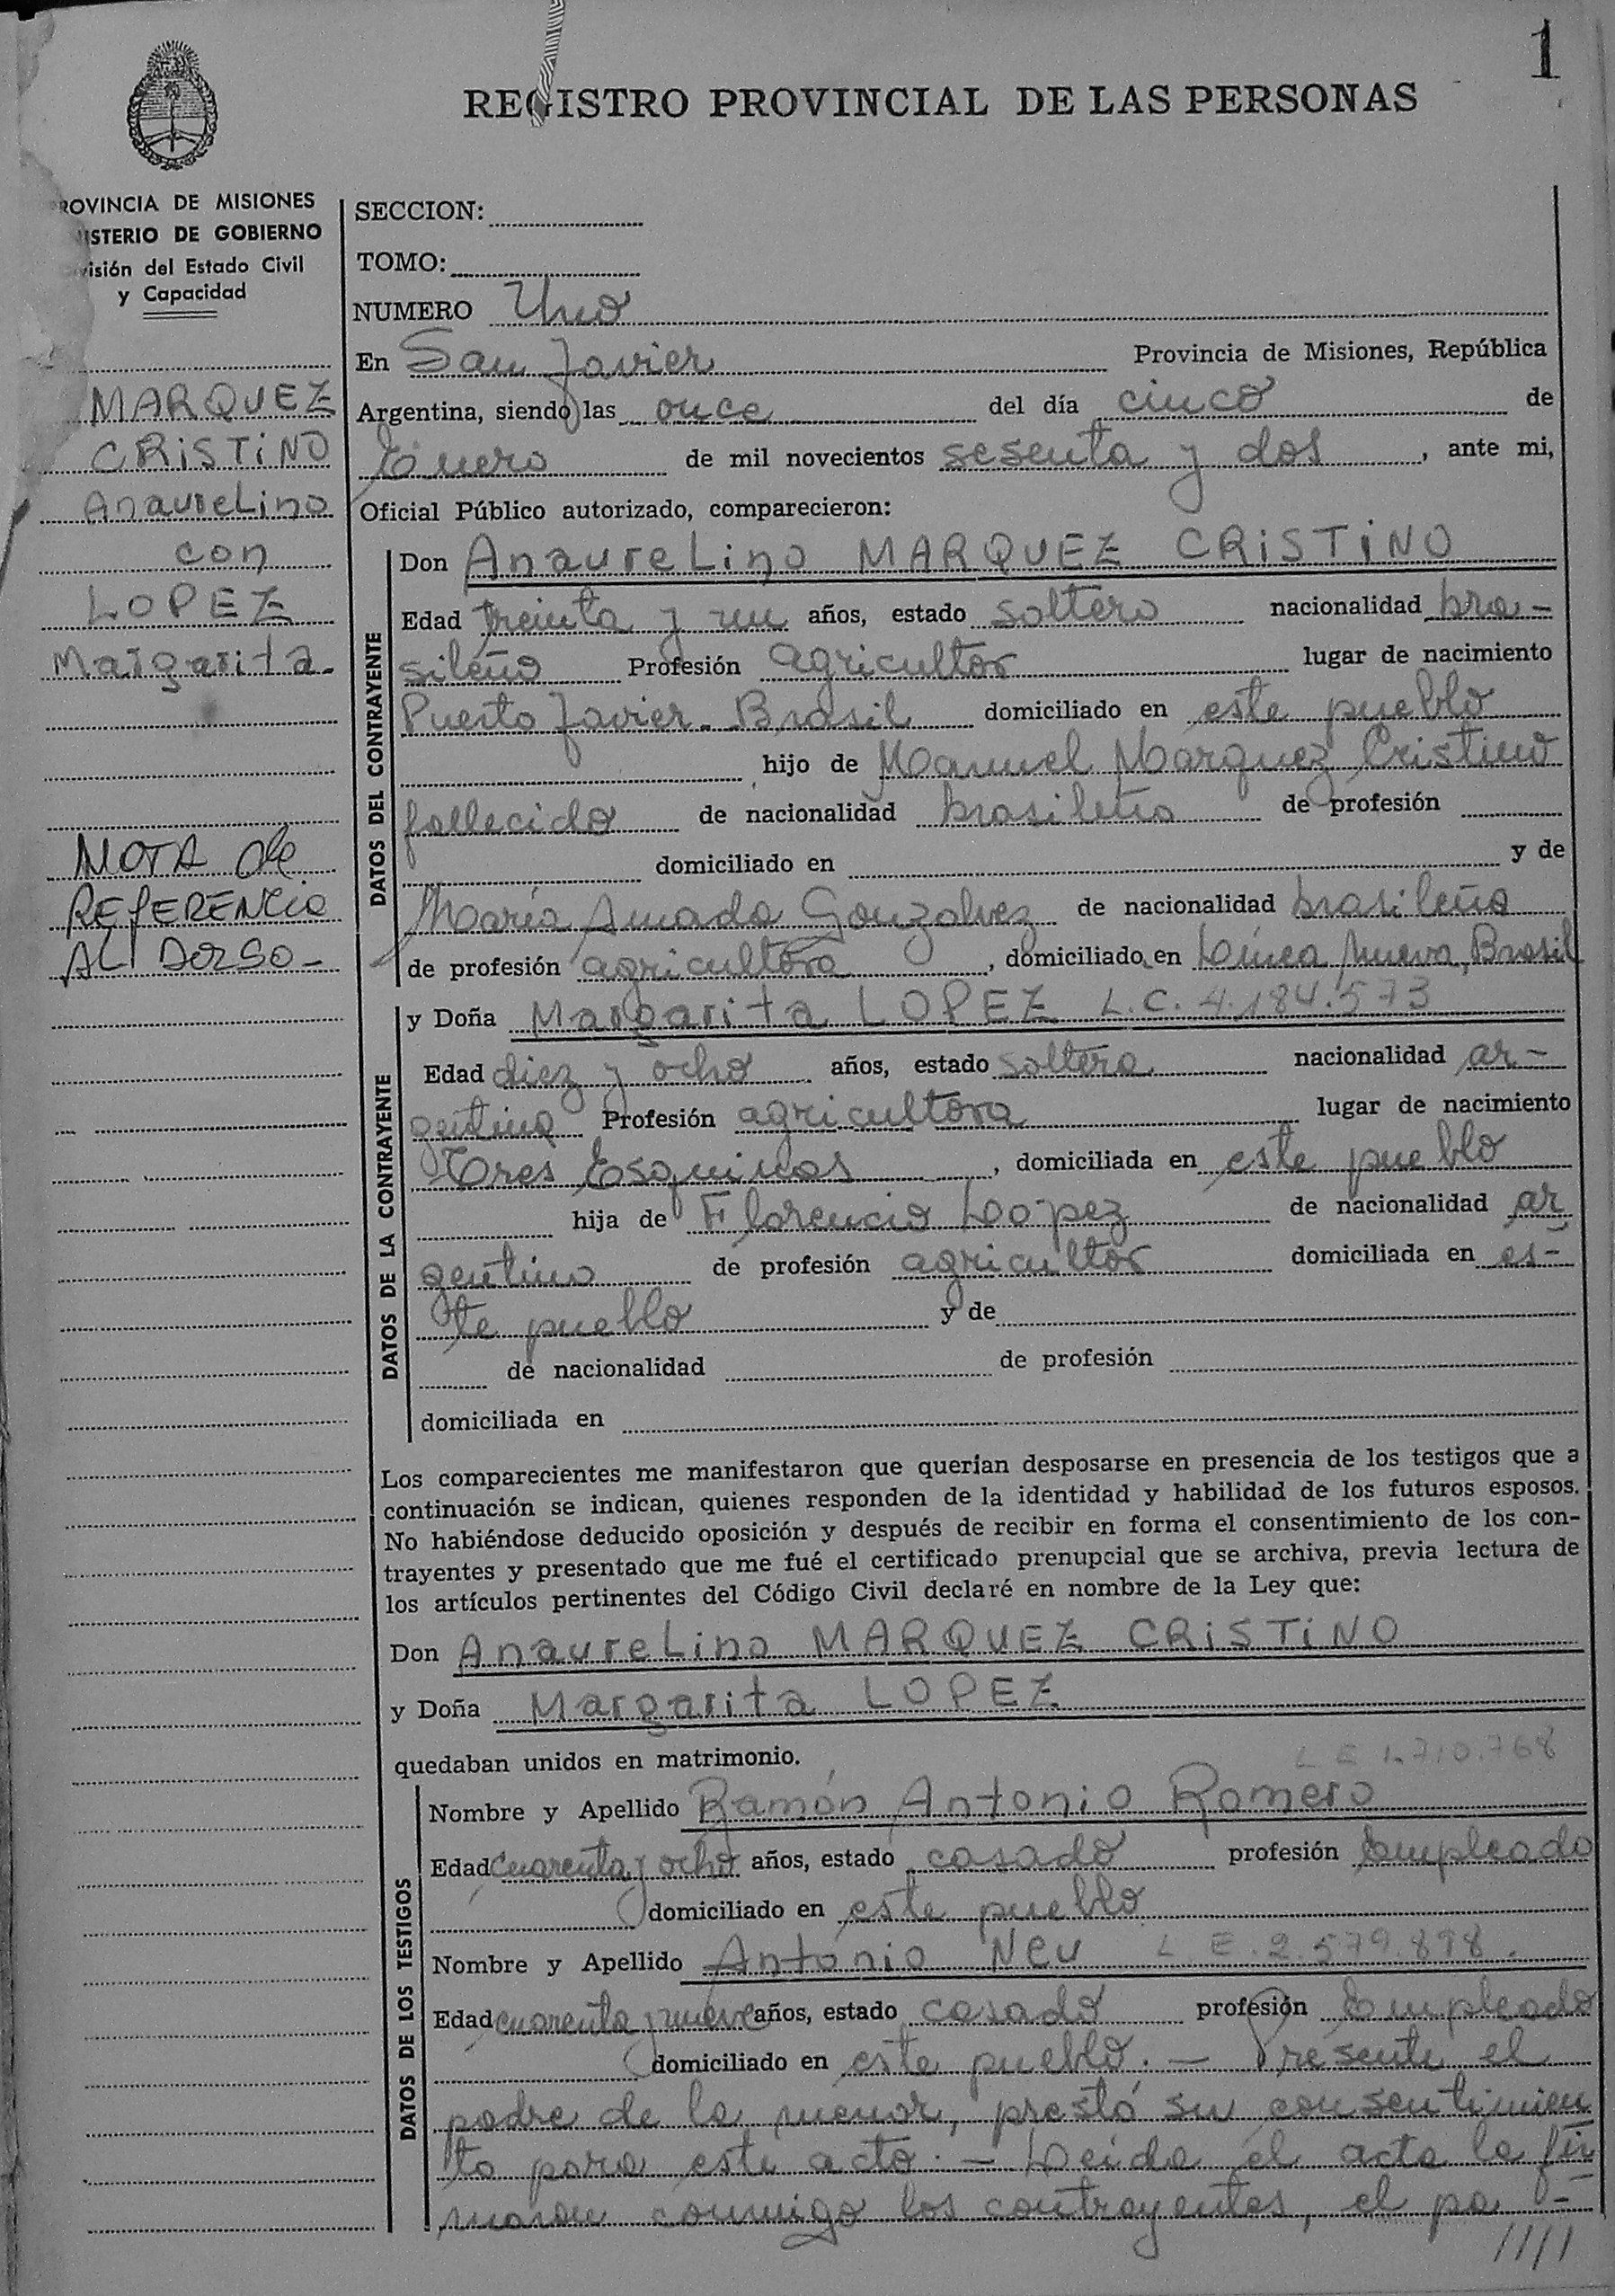 1
REGISTRO PROVINCIAL DE LAS PERSONAS
ROVINCIA DE MISIONES
ISTERIO DE GOBIERNO
visión del Estado Civil
y Capacidad
MARQUEZ
CRISTINO
Anaurelino
con
LOPEZ
Margarita.
NOTA de
REFERENCIA
AL DORSO -
SECCION:
TOMO:
NUMERO Uno
En San Javier Provincia de Misiones, República
Argentina, siendo las once del día cinco de
Enero de mil novecientos sesenta y dos , ante mi,
Oficial Público autorizado, comparecieron:
DATOS DEL CONTRAYENTE
Don Anaurelino MARQUEZ CRISTINO
Edad treinta y un años, estado soltero nacionalidad bra-
sileño Profesión agricultor lugar de nacimiento
Puerto Javier - Brasil domiciliado en este pueblo
hijo de Manuel Marquez Cristino
fallecido de nacionalidad brasileño de profesión
domiciliado en y de
María Amada Gonzalvez de nacionalidad brasileña
de profesión agricultora , domiciliado en Línea Nueva, Brasil
DATOS DE LA CONTRAYENTE
y Doña Margarita LOPEZ L.C. 4.184.573
Edad diez y ocho años, estado soltera nacionalidad ar-
gentina Profesión agricultora lugar de nacimiento
Tres Esquinas , domiciliada en este pueblo
hija de Florencio Lopez de nacionalidad ar
gentino de profesión agricultor domiciliada en es-
te pueblo y de
de nacionalidad de profesión
domiciliada en
Los comparecientes me manifestaron que querían desposarse en presencia de los testigos que a
continuación se indican, quienes responden de la identidad y habilidad de los futuros esposos.
No habiéndose deducido oposición y después de recibir en forma el consentimiento de los con-
trayentes y presentado que me fué el certificado prenupcial que se archiva, previa lectura de
los artículos pertinentes del Código Civil declaré en nombre de la Ley que:
Don Anaurelino MARQUEZ CRISTINO
y Doña Margarita LOPEZ
quedaban unidos en matrimonio. L E 1.710.768
DATOS DE LOS TESTIGOS
Nombre y Apellido Ramón Antonio Romero
Edad cuarenta y ocho años, estado casado profesión Empleado
domiciliado en este pueblo
Nombre y Apellido Antonio Neu L.E. 2.579.898.
Edad cuarenta y nueve años, estado casado profesión Empleado
domiciliado en este pueblo. - Presente el
padre de la menor, prestó su consentimien
to para este acto. - Leída el acta la fir
maron conmigo los contrayentes, el pa -
////